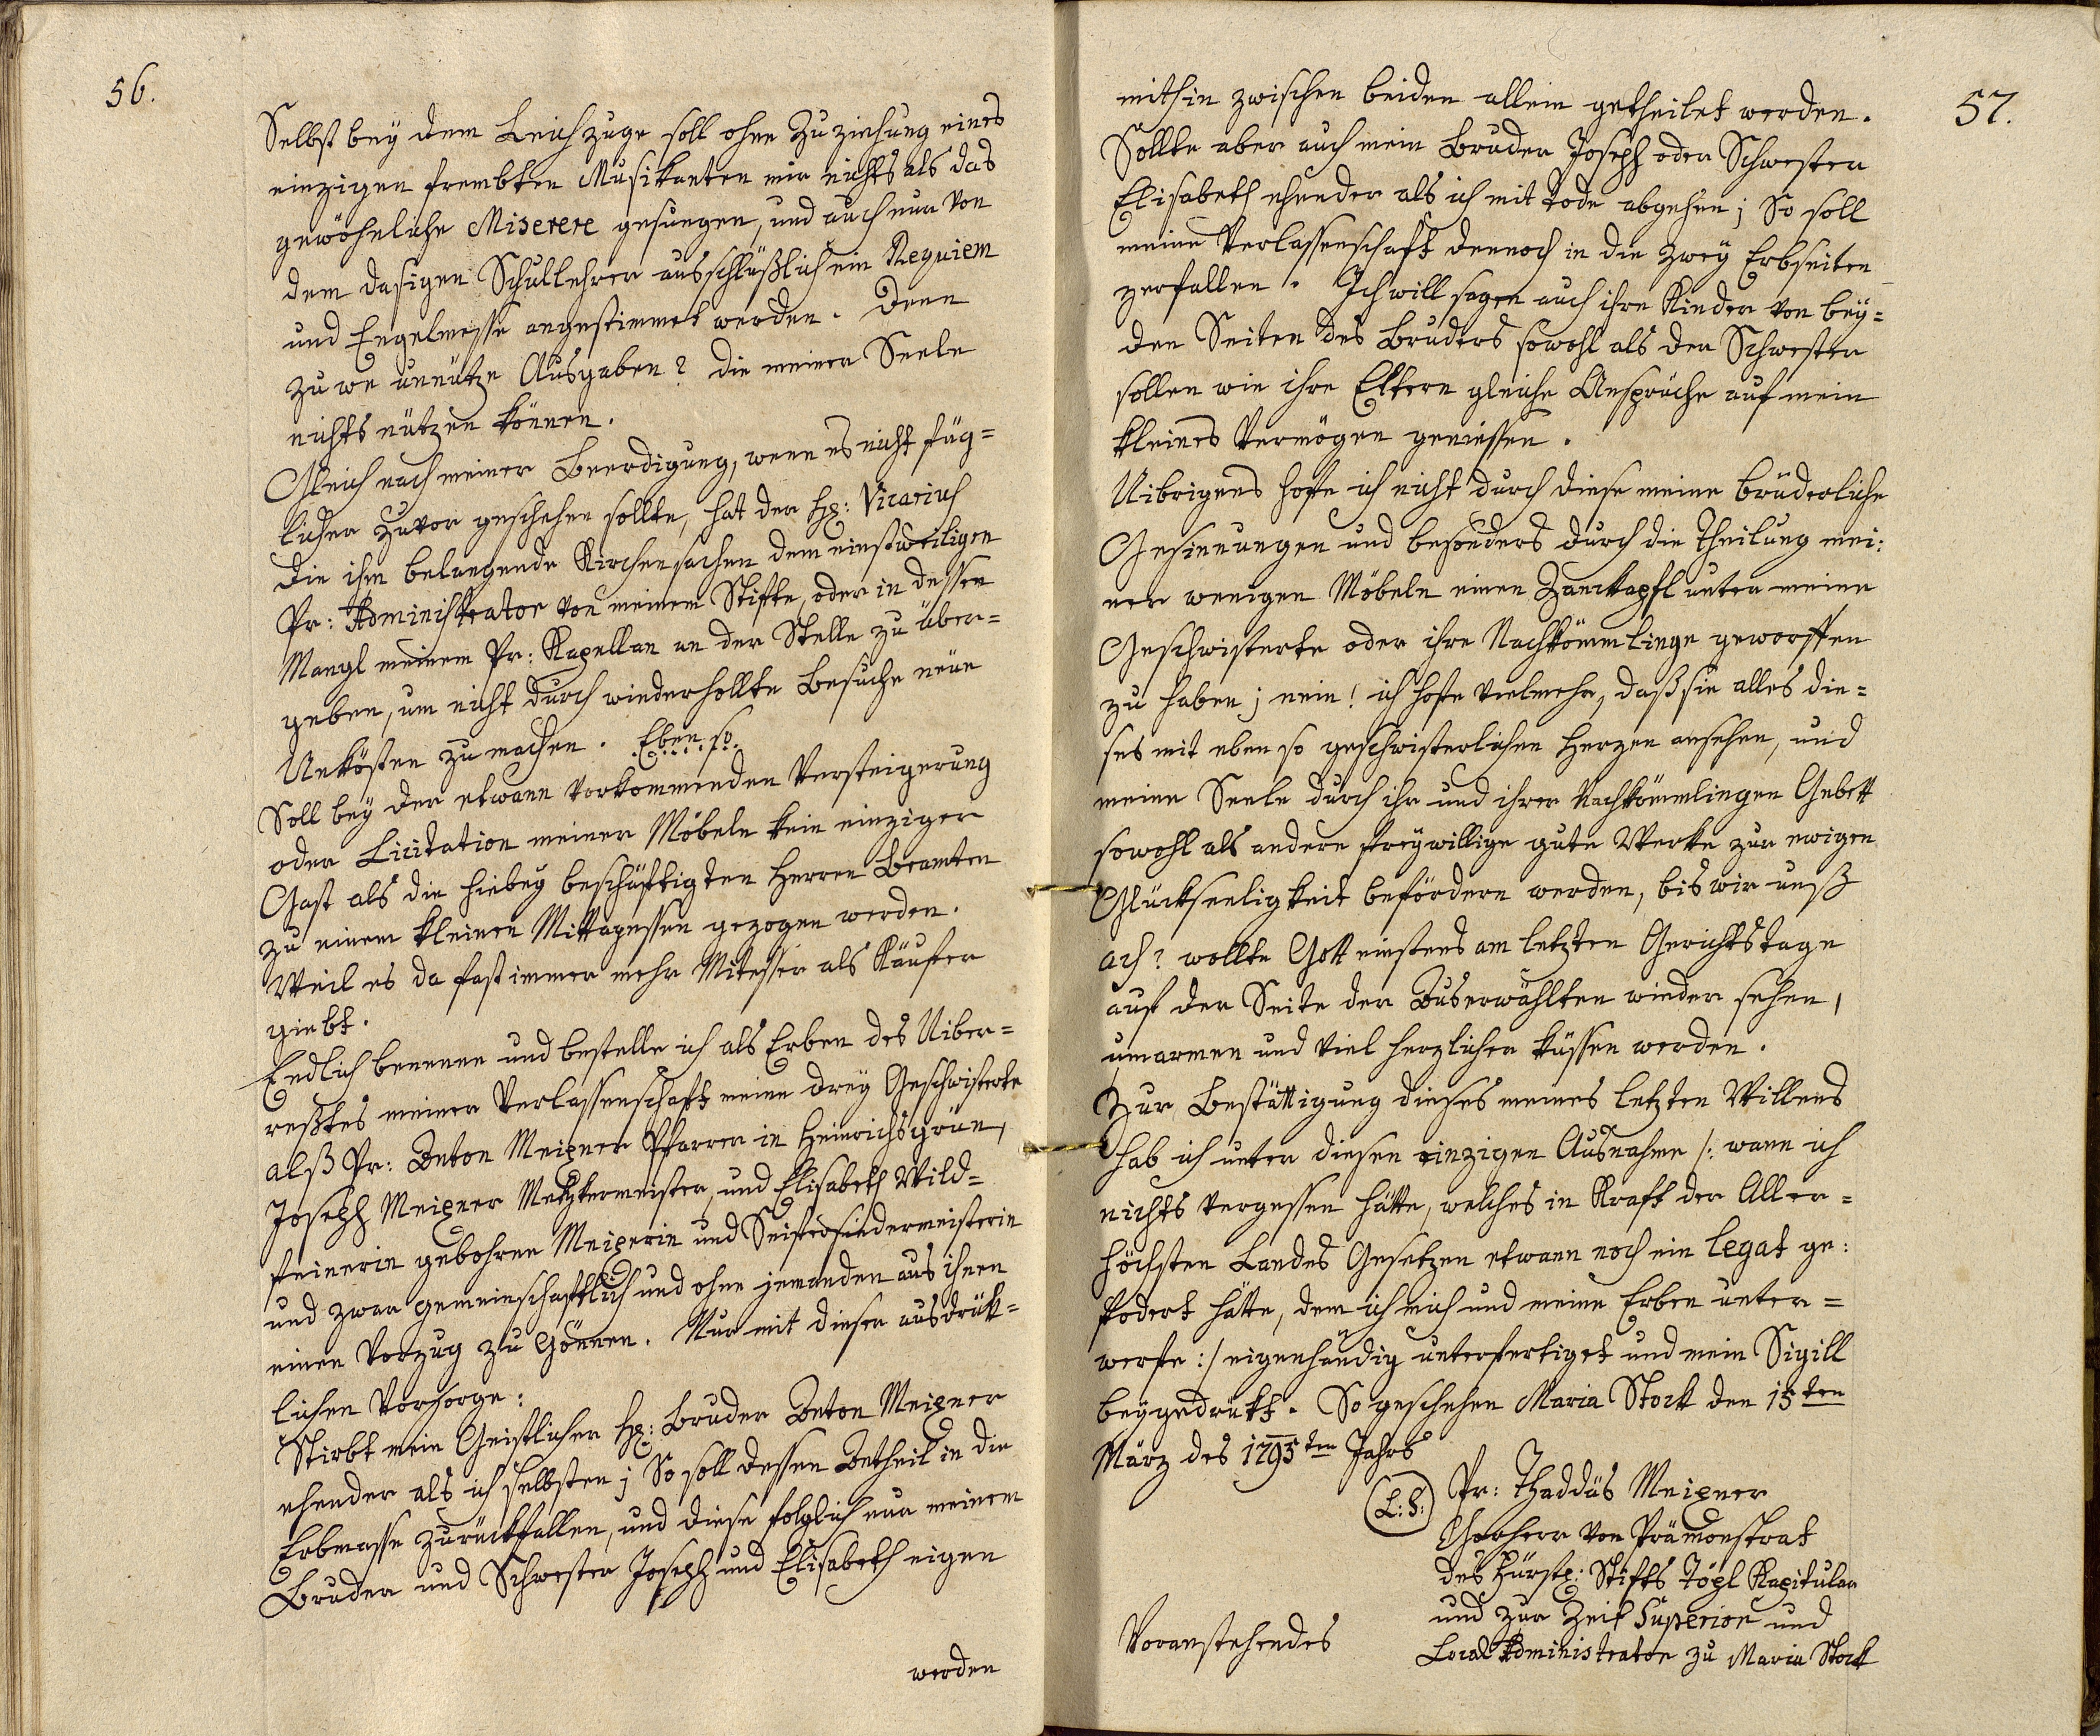 56.
Selbst bey dem Leichzuge soll ohne Zuziehung eines
einzigen frembten Musikanten mir nichts als das
gewöhnliche Miserere gesungen, und auch nur von
dem dasigen Schullehrer ausschlüßlich ein Requiem
und Engelmesse angestimmet werden. Denn
zu we unnütze Ausgaben? die meiner Seele
nichts nützen können.
Gleich nach meiner Beerdigung, wenn es nicht füg=
licher zuvor geschehen sollte, hat der H: Vicarius
die ihm belangende Kirchensachen dem einstweiligen
Pr: Administrator von meinem Stifte, oder in dessen
Mangl meinem Pr: Kapellan an der Stelle zu über=
geben, um nicht durch wiederhollte Besuche neue
Unkösten zu machen. Eben so
Soll bey der etwann vorkommenden Versteigerung
oder Licitation meiner Möbeln kein einziger
Gast als die hiebey beschäftigten Herren Beamten
zu einem kleinen Mittagessen gezogen werden.
Weil es da fast immer mehr Mitesser als Käufer
giebt.
Endlich benenne und bestelle ich als Erben des Uiber=
restes meiner Verlassenschaft meine drey Geschwisterte
alß Pr: Anton Meixner Pfarrer in Heinrichsgrün,
Joseph Meixner Metzkermeister, und Elisabeth Wild=
feinerin gebohrne Meixnerin und Seifensiedermeisterin
und zwar gemeinschaftlich und ohne jemanden aus ihnen
einen Vorzug zu gönnen. Nur mit dieser ausdrük=
lichen Vorsorge:
Stirbt mein Geistlicher H: Bruder Anton Meixner
ehender als ich selbsten; So soll dessen Antheil in die
Erbmasse zurückfallen, und diese folglich nur meinem
Bruder und Schwester Joseph und Elisabeth eigen
werden
57.
mithin zwischen beiden allein getheilet werden.
Sollte aber auch mein Bruder Joseph oder Schwester
Elisabeth ehender als ich mit Tode abgehen; So soll
meine Verlassenschaft dennoch in die zwey Erbseiten
zerfallen. Ich will sagen auch ihre Kinder von bey=
den Seiten des Bruders sowohl als der Schwester
sollen wie ihre Eltern gleiche Ansprüche auf mein
kleines Vermögen geniessen.
Uibrigens hoffe ich nicht durch diese meine brüderliche
Gesinnungen und besonders durch die Theilung mei:
ner wenigen Möbeln einen Zanckapfl unter meine
Geschwisterte oder ihre Nachkömmlinge geworffen
zu haben; nein! ich hoffe vielmehr, daß sie alles die=
ses mit eben so geschwisterlichen Herzen ansehen, und
meine Seele durch ihr und ihrer Nachkömmlingen Gebett
sowohl als andere freywillige gute Werke zur ewigen
Glückseeligkeit befördern werden, bis wir unß
ach? wollte Gott einstens am letzten Gerichtstage
auf der Seite der Auserwählten wieder sehen,
umarmen und viel herzlicher küssen werden.
Zur Bestättigung dieses meines letzten Willens
hab ich unter diesen einzigen Ausnahme /: wann ich
nichts vergessen hätte, welches in Kraft der Aller=
höchsten Landes Gesetzen etwann noch ein Legat ge:
fodert hätte, dem ich mich und meine Erben unter=
werfe :/ eigenhändig unterfertiget und mein Sigill
beygedrükt. So geschehen Maria Stock den 15ten
März des 1795ten Jahrs
(L: S:)
Pr: Thaddäs Meixner
Chorherr von Prämonstrat
des Stifts Töpl Kapitular
und zur Zeit Superior und
Local Administrator zu Maria Stock
Voranstehendes